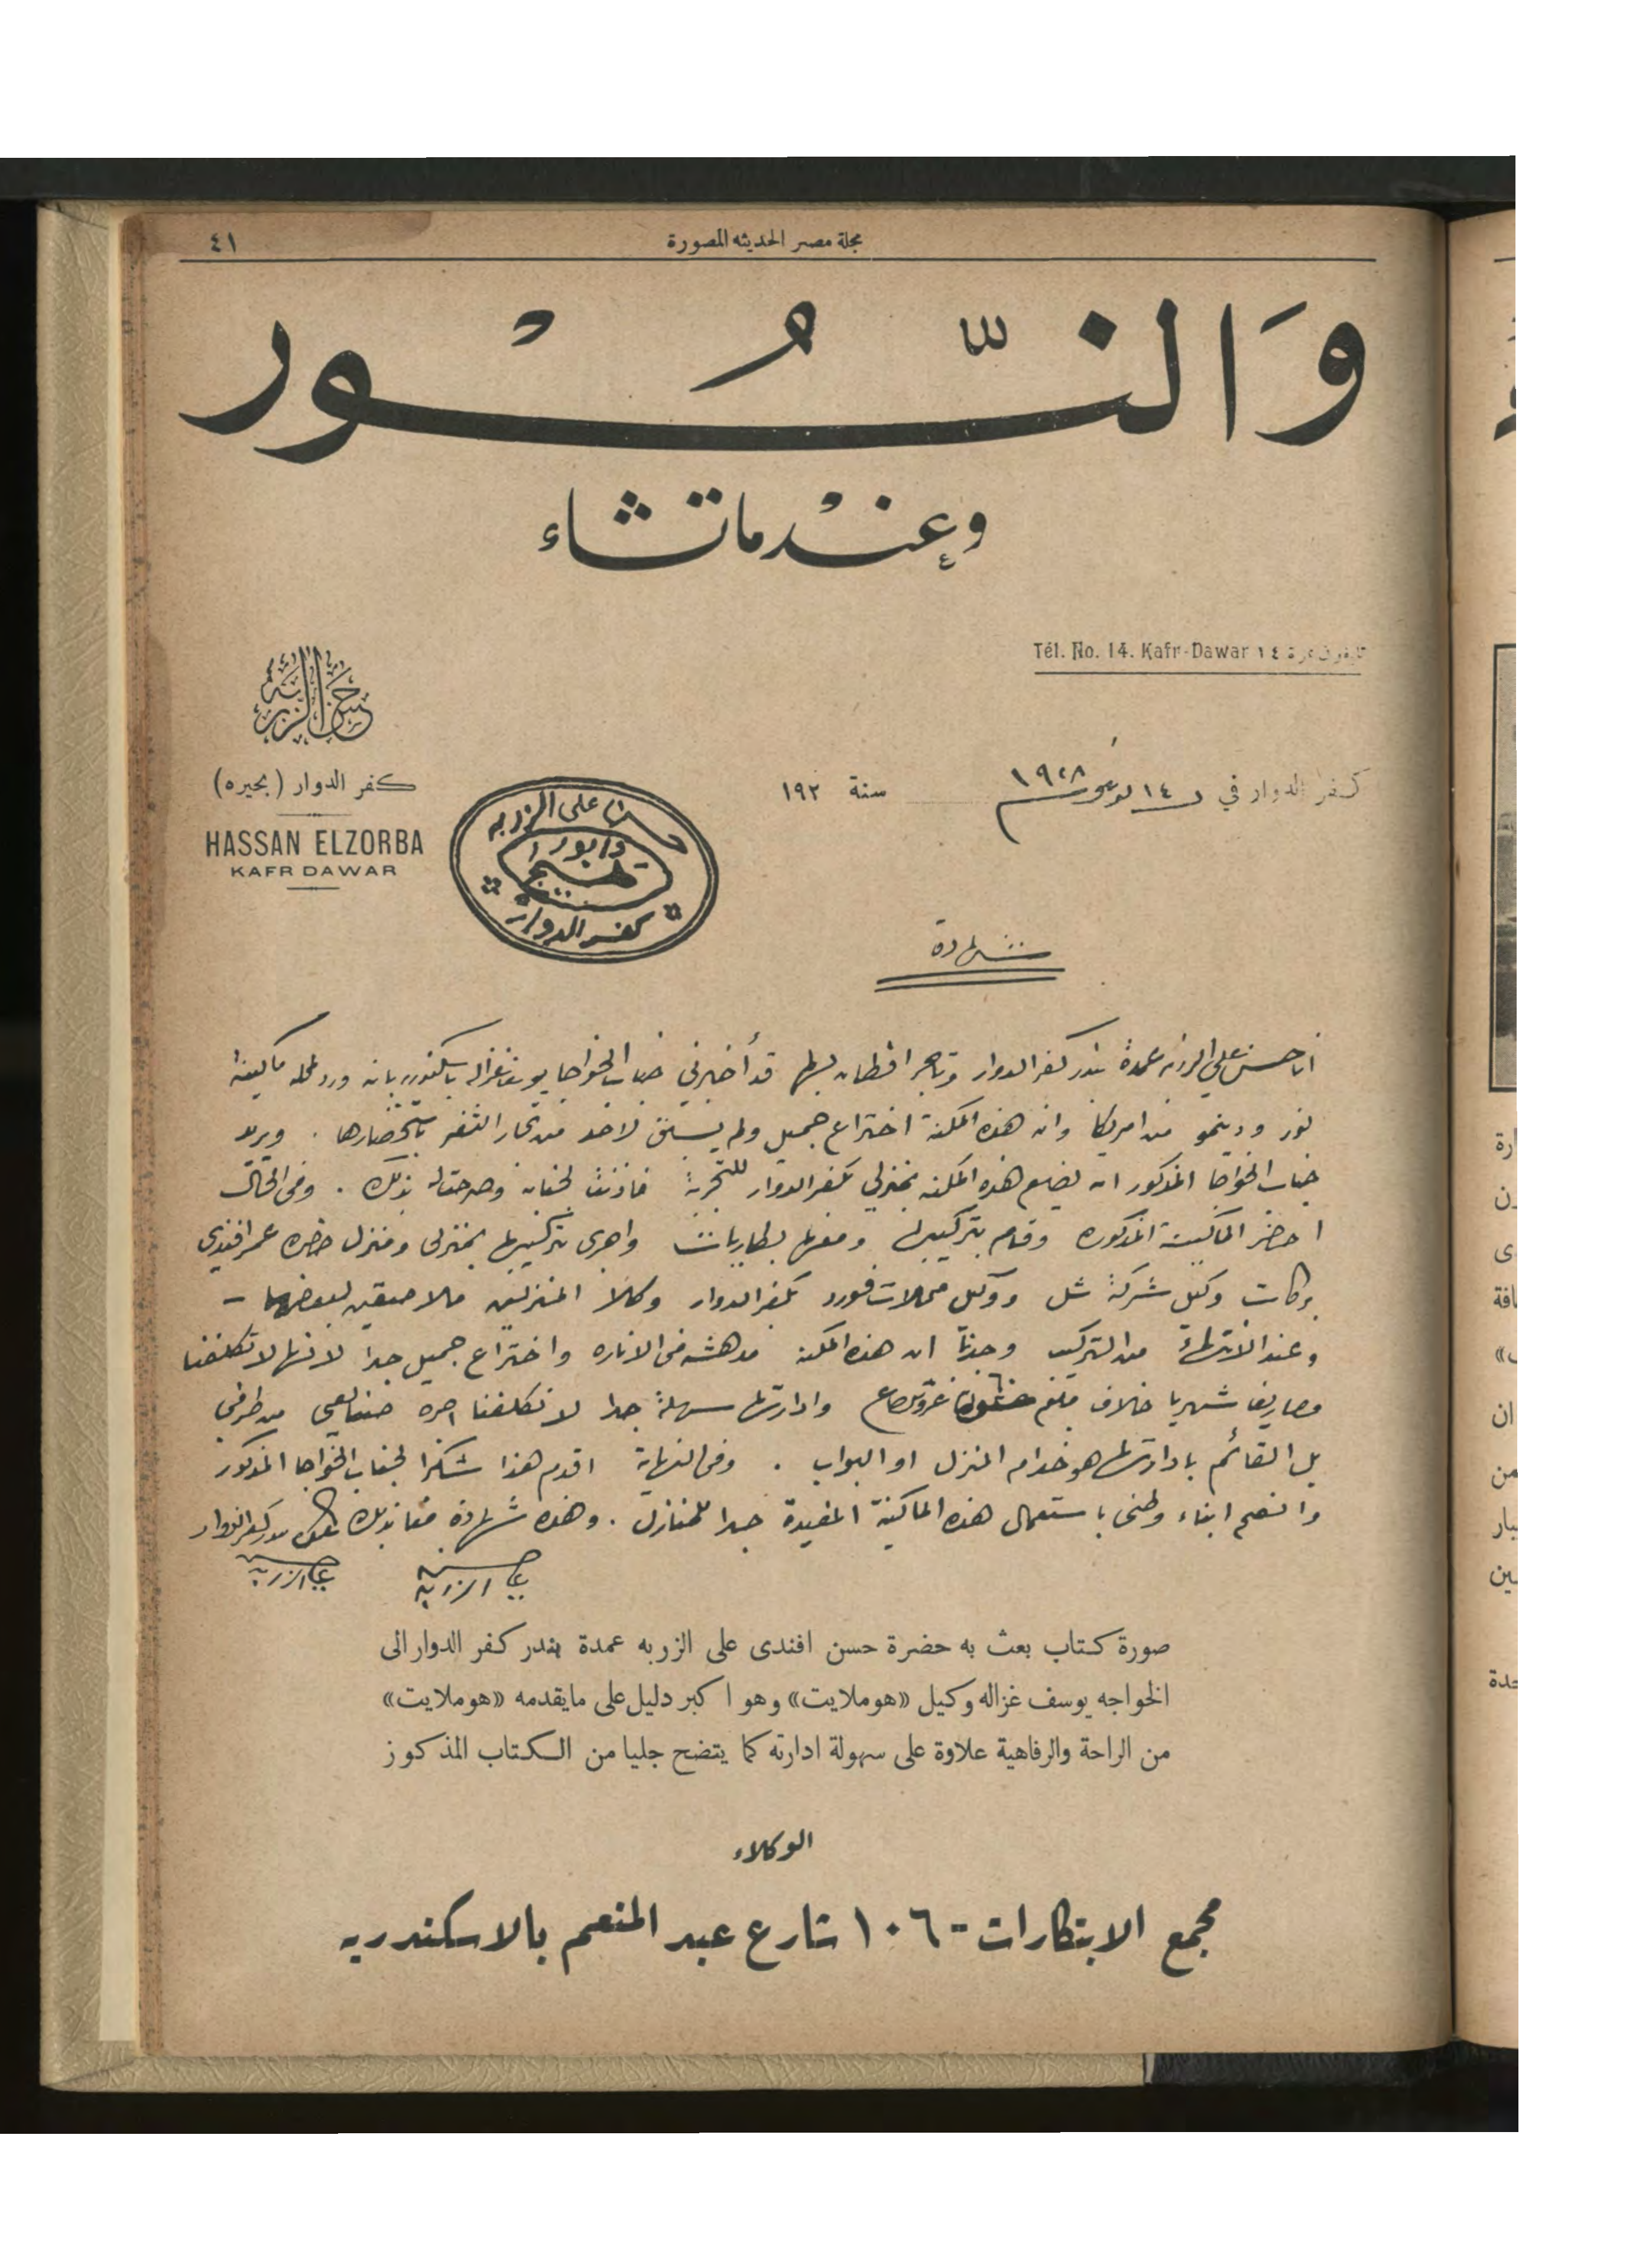 مجلة مصر الحديثه المصورة
٤١
وَالنُّسْور
وعِنْدماتشاء
Tél. No. 14. Kafr-Dawar تليفون نمرة ١٤
حسن الزربه
كفر الدوار (بحيره)
HASSAN ELZORBA
KAFR DAWAR
كفر الدوار في ١٤ نوفمبر ١٩٢٨ سنة ١٩٢
حسن على الزربه
وابور
كفر الدوار
شهادة
انا حسن علي الزربه عمدة بندر كفر الدوار وتاجر اقطان بها قد أخبرني جناب الخواجا يوسف غزاله باسكندريه بانه ورد لمحله ماكينة
نور ودينمو من امريكا وانه هذه المكنة اختراع جميل ولم يسبق لاحد من تجار الثغر باستحضارها . ويريد
جناب الخواجا المذكور ان يضع هذه المكنه بمنزلي بكفر الدوار للتجربة فاذنت لجنابه وصرحت له بذلك . وفى الحال
احضر الماكينة المذكوره وقام بتركيبها ومعها بطاريات واجرى تركيبها بمنزلى ومنزل حضرة عمر افندي
بركات وكيل شركة شل ووكيل محلات فورد بكفر الدوار وكلا المنزلين ملاصقين لبعضهما –
وعند الانتهاء من التركيب وجدنا ان هذه المكنه مدهشه فى الاناره واختراع جميل جدا لانها لا تكلفنا
مصاريف شهريا خلاف مبلغ غروش صاغ وادارتها سهلة جدا لا تكلفنا اجره صنايعي من طرفي
بل القائم بادارتها هو خدام المنزل او البواب . وفى النهاية اقدم هذا شكرا لجناب الخواجا المذكور
وانصح ابناء وطنى باستعمال هذه الماكينة المفيدة جدا للمنازل . وهذه شهادة منا بذلك
حسن علي الزربه
صورة كتاب بعث به حضرة حسن افندى على الزربه عمدة بندر كفر الدوار الى
الخواجه يوسف غزاله وكيل «هوملايت» وهو اكبر دليل على مايقدمه «هوملايت»
من الراحة والرفاهية علاوة على سهولة ادارته كما يتضح جليا من الكتاب المذكوز
الوكلاء
مجمع الابتكارات - ١٠٦ شارع عبد المنعم بالاسكندريه